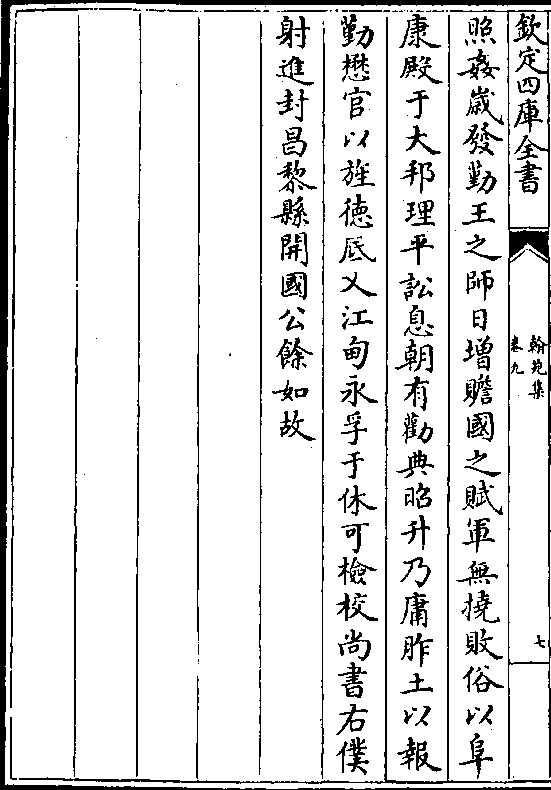 欽定四庫全書
翰苑集
卷九
七
照姦歲發勤王之師日增贍國之賦軍無撓敗俗以阜
康殿于大邦理平訟息朝有勸典昭升乃庸胙土以報
勤懋官以旌德厎乂江甸永孚于休可檢校尚書右僕
射進封昌黎縣開國公餘如故